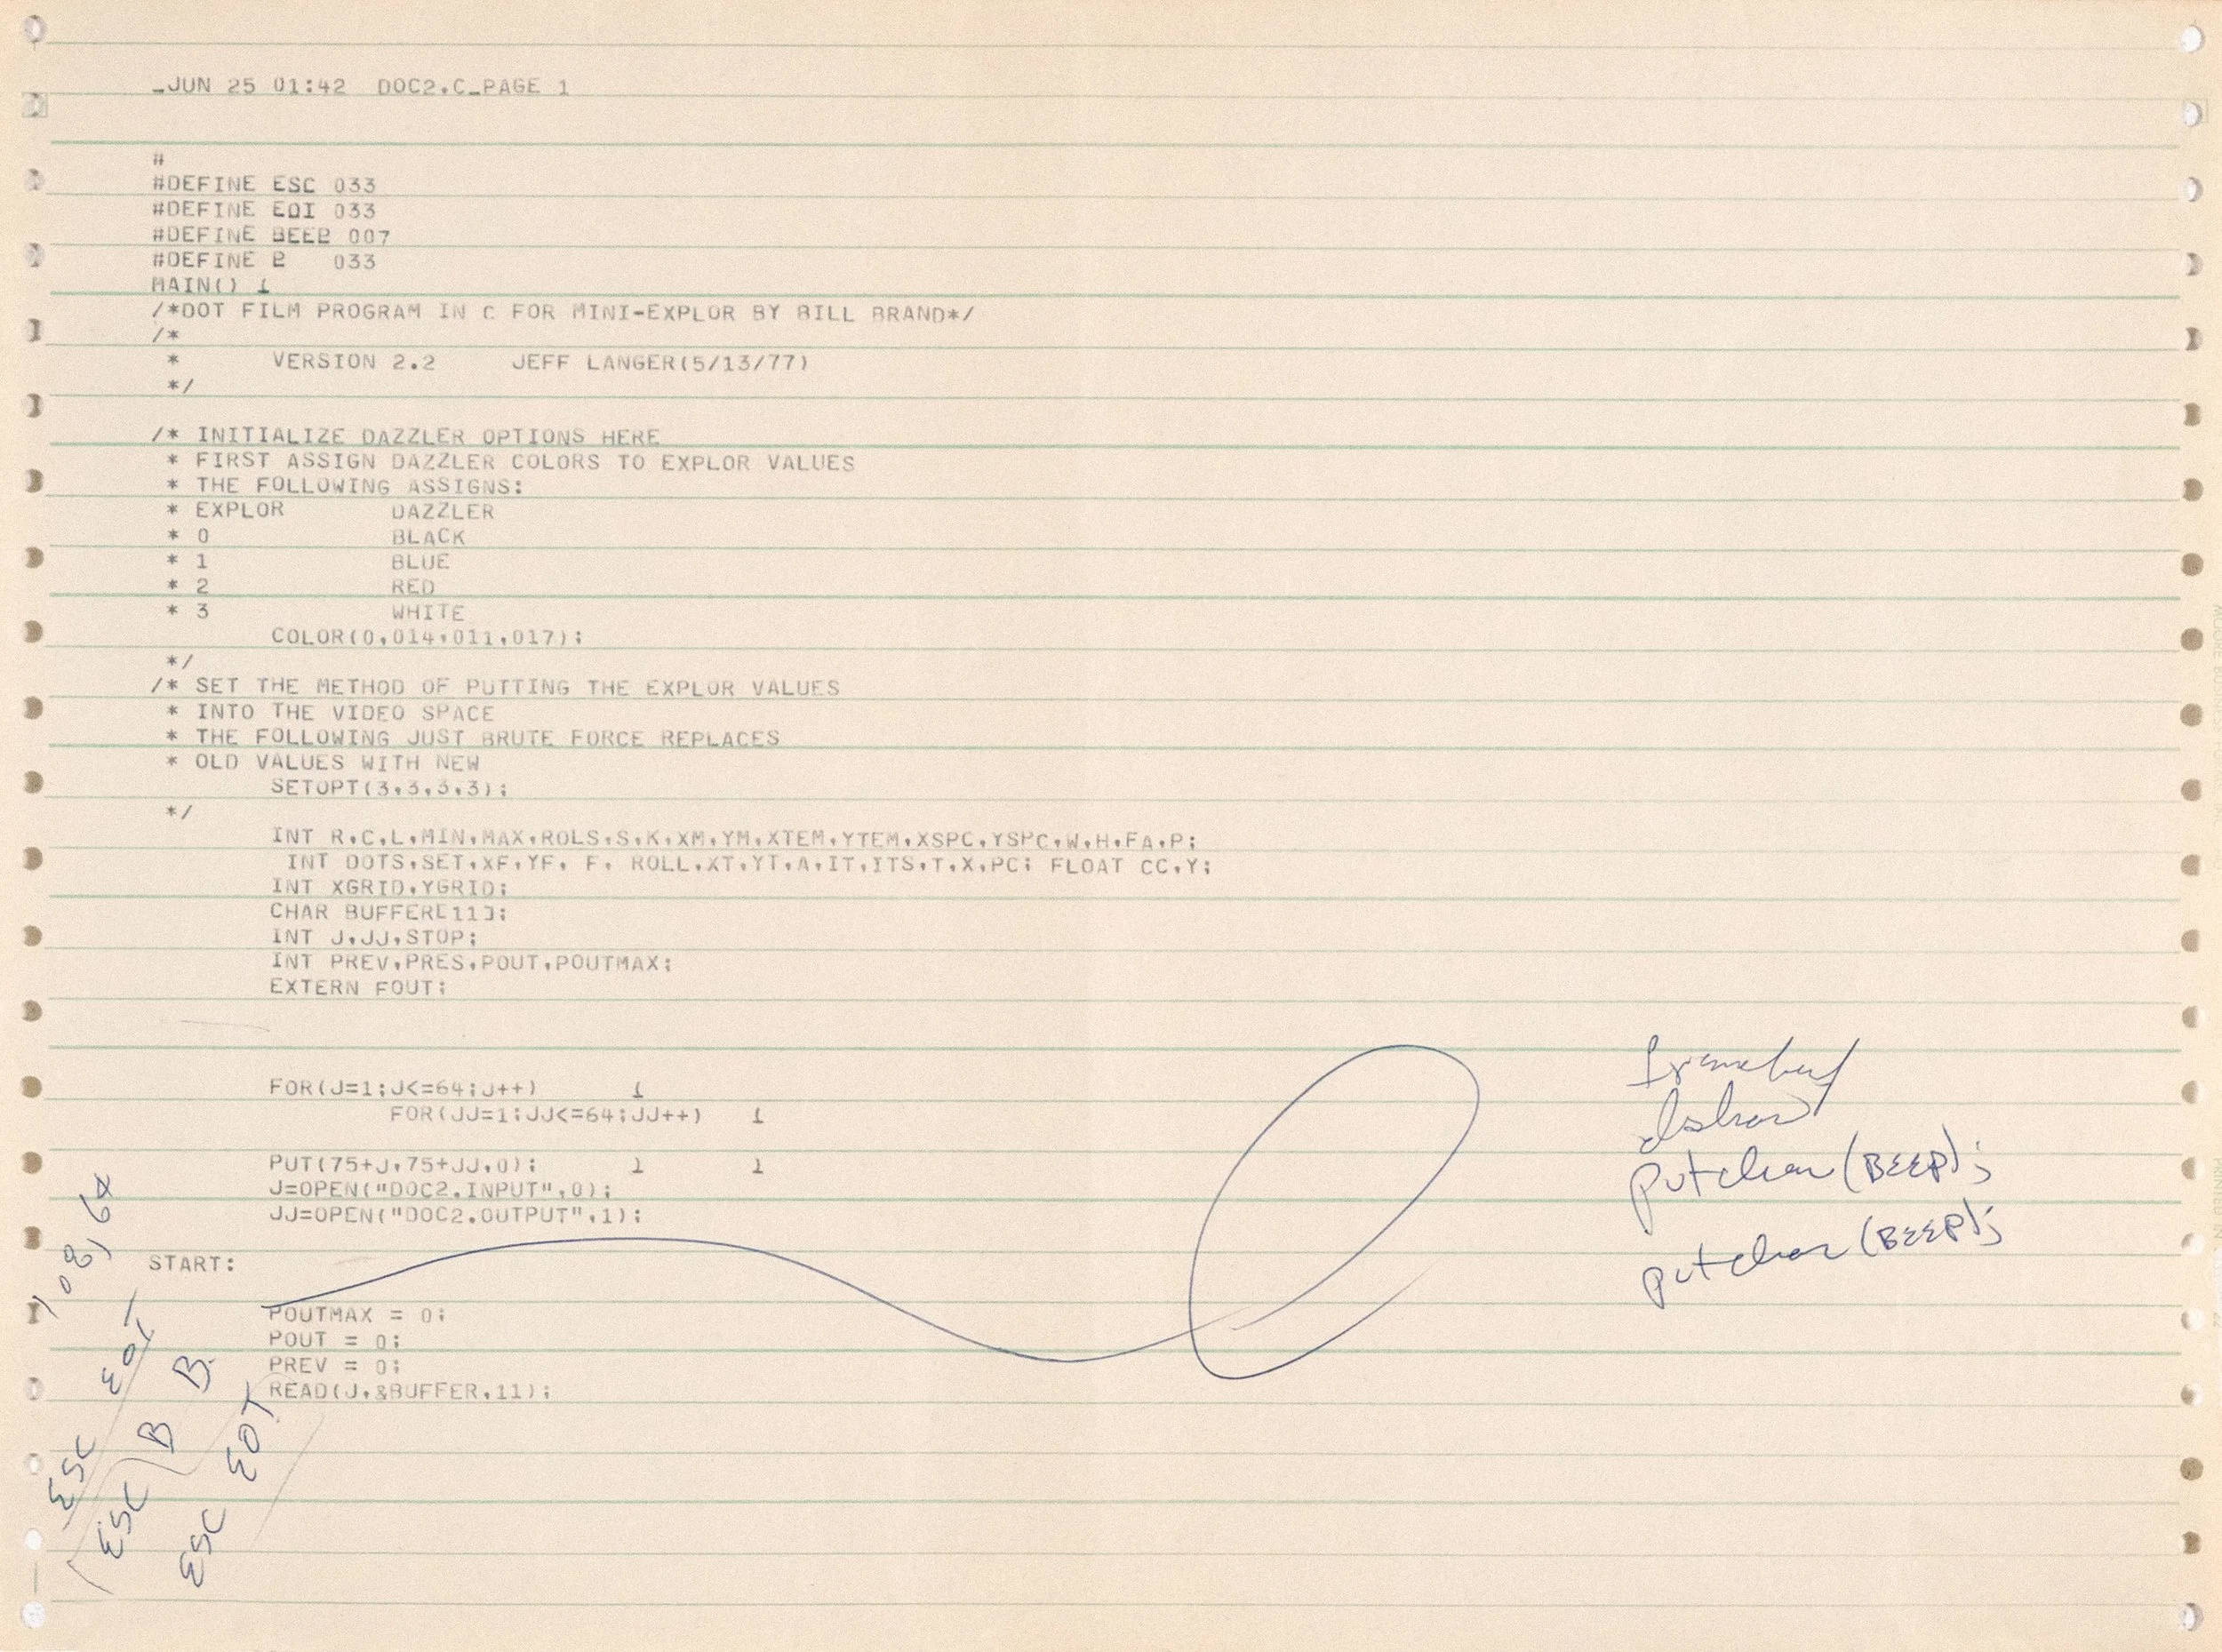 _JUN 25 01:42  DOC2.C_PAGE 1
#
#DEFINE ESC 033
#DEFINE EOI 033
#DEFINE BEEP 007
#DEFINE P   033
MAIN() {
/*DOT FILM PROGRAM IN C FOR MINI-EXPLOR BY BILL BRAND*/
/*
 *      VERSION 2.2     JEFF LANGER(5/13/77)
 */
/* INITIALIZE DAZZLER OPTIONS HERE
 * FIRST ASSIGN DAZZLER COLORS TO EXPLOR VALUES
 * THE FOLLOWING ASSIGNS:
 * EXPLOR       DAZZLER
 * 0            BLACK
 * 1            BLUE
 * 2            RED
 * 3            WHITE
        COLOR(0,014,011,017);
 */
/* SET THE METHOD OF PUTTING THE EXPLOR VALUES
 * INTO THE VIDEO SPACE
 * THE FOLLOWING JUST BRUTE FORCE REPLACES
 * OLD VALUES WITH NEW
        SETOPT(3,3,3,3);
 */
        INT R,C,L,MIN,MAX,ROLS,S,K,XM,YM,XTEM,YTEM,XSPC,YSPC,W,H,FA,P;
         INT DOTS,SET,XF,YF, F, ROLL,XT,YT,A,IT,ITS,T,X,PC; FLOAT CC,Y;
        INT XGRID,YGRID;
        CHAR BUFFER[11];
        INT J,JJ,STOP;
        INT PREV,PRES,POUT,POUTMAX;
        EXTERN FOUT;
        FOR(J=1;J<=64;J++)      {
                FOR(JJ=1;JJ<=64;JJ++)   {
        PUT(75+J,75+JJ,0);      }       }
        J=OPEN("DOC2.INPUT",0);
        JJ=OPEN("DOC2.OUTPUT",1);
START:
        POUTMAX = 0;
        POUT = 0;
        PREV = 0;
        READ(J,&BUFFER,11);
putchar (BEEP);
putchar (BEEP);
ESC EOT
ESC B B
ESC EOT